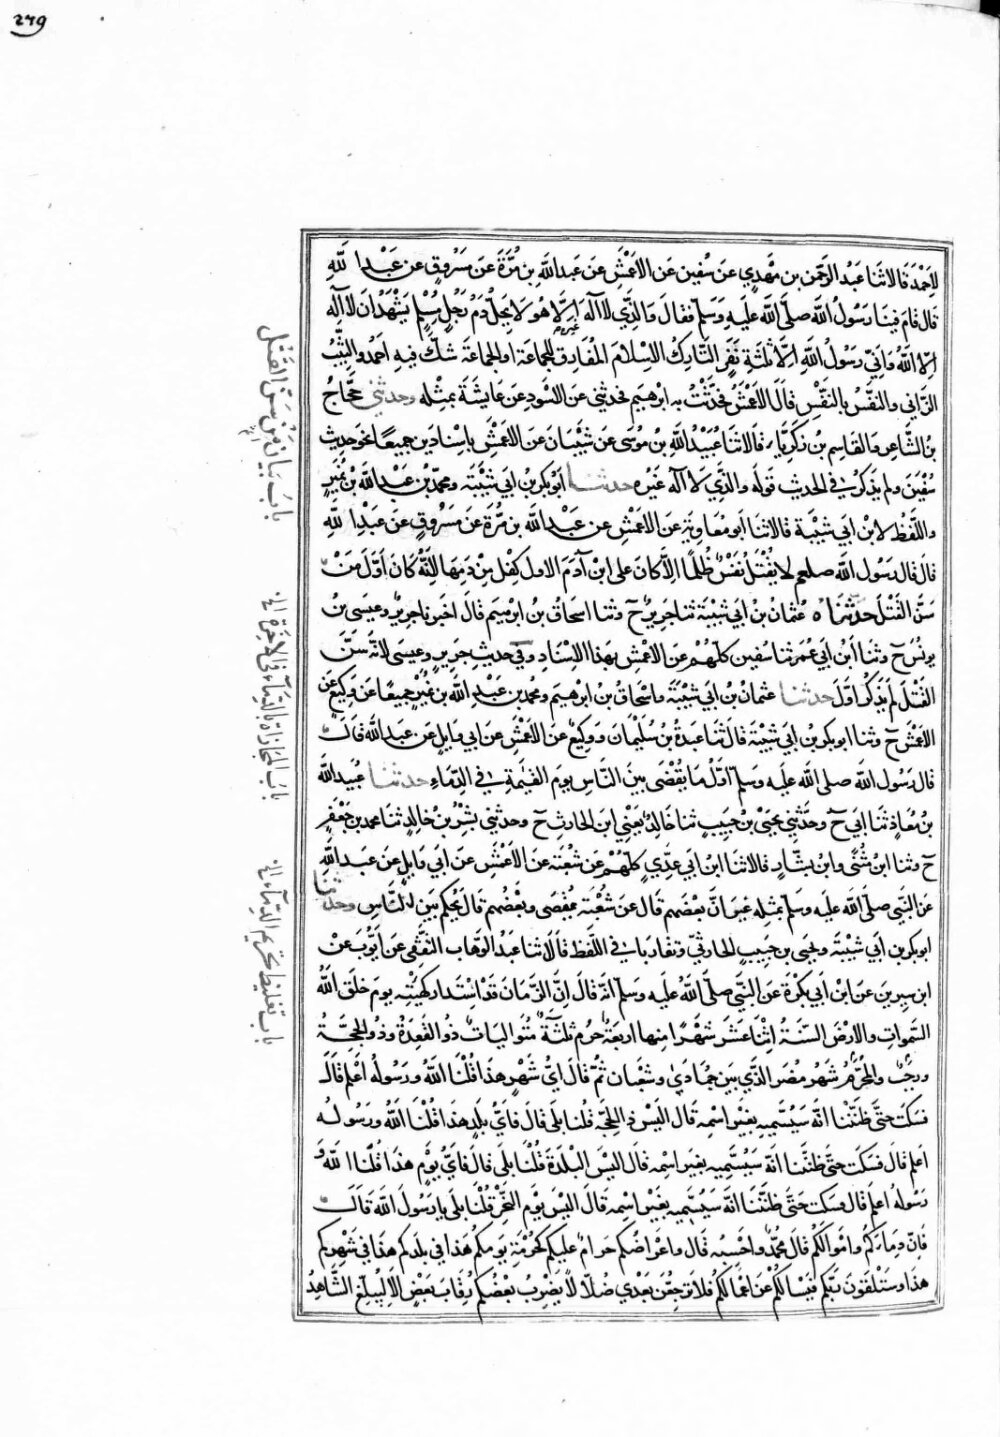 ٢٦٩
لاحمد قالا ثنا عبد الرحمن بن مهدي عن سفين عن الاعمش عن عبد الله بن مرة عن مسروق عن عبد الله
قال قام فينا رسول الله صلى الله عليه وسلم فقال والذي لا اله الا هو لا يحل دم رجل مسلم يشهد ان لا اله
غيره
الا الله واني رسول الله الا ثلثة نفر التارك الاسلام المفارق للجماعة او الجماعة شك فيه احمد والثيب
الزاني والنفس بالنفس قال الاعمش فحدثت به ابرهيم فحدثني عن الاسود عن عايشة بمثله وحدثني حجاج
بن الشاعر والقاسم بن زكرياء قالا ثنا عبيد الله بن موسى عن شيبان عن الاعمش باسنادين جميعا نحو حديث
سفين ولم يذكر في الحديث قوله والذي لا اله غيره حدثنا ابو بكر بن ابي شيبة ومحمد بن عبد الله بن نمير
واللفظ لابن ابي شيبة قالا ثنا ابو معاوية عن الاعمش عن عبد الله بن مرة عن مسروق عن عبد الله
قال قال رسول الله صلعم لا يقتل نفس ظلما الا كان على ابن آدم الاول كفل من دمها لانه كان اول من
سن القتل حدثنا ه عثمان بن ابي شيبة ثنا جرير ح وثنا اسحاق بن ابرهيم قال اخبرنا جرير وعيسى بن
يونس ح وثنا ابن ابي عمر ثنا سفين كلهم عن الاعمش بهذا الاسناد وفي حديث جرير وعيسى لانه سن
القتل لم يذكر اول حدثنا عثمان بن ابي شيبة واسحاق بن ابرهيم ومحمد بن عبد الله بن نمير جميعا عن وكيع عن
الاعمش ح وثنا ابو بكر بن ابي شيبة قال ثنا عبدة بن سليمان ووكيع عن الاعمش عن ابي وايل عن عبد الله قال
قال رسول الله صلى الله عليه وسلم اول ما يقضى بين الناس يوم القيمة في الدماء حدثنا عبيد الله
بن معاذ ثنا ابي ح وحدثني يحيى بن حبيب ثنا خالد يعني ابن الحارث ح وحدثني بشر بن خالد ثنا محمد بن جعفر
ح وثنا ابن مثنى وابن بشار قالا ثنا ابن ابي عدي كلهم عن شعبة عن الاعمش عن ابي وايل عن عبد الله
عن النبي صلى الله عليه وسلم بمثله غير ان بعضهم قال عن شعبة يقضى وبعضهم قال يحكم بين الناس وحدثنا
ابو بكر بن ابي شيبة ويحيى بن حبيب الحارثي وتقاربا في اللفظ قالا ثنا عبد الوهاب الثقفي عن ايوب عن
ابن سيرين عن ابن ابي بكرة عن النبي صلى الله عليه وسلم انه قال ان الزمان قد استدار كهيئته يوم خلق الله
السموات والارض السنة اثنا عشر شهرا منها اربعة حرم ثلثة متواليات ذو القعدة وذو الحجة
والمحرم ورجب شهر مضر الذي بين جمادى وشعبان ثم قال اي شهر هذا قلنا الله ورسوله اعلم قال
فسكت حتى ظننا انه سيسميه بغير اسمه قال اليس ذا الحجة قلنا بلى قال فاي بلد هذا قلنا الله ورسوله
اعلم قال فسكت حتى ظننا انه سيسميه بغير اسمه قال اليس البلدة قلنا بلى قال فاي يوم هذا قلنا الله و
رسوله اعلم قال فسكت حتى ظننا انه سيسميه بغير اسمه قال اليس يوم النحر قلنا بلى يا رسول الله قال
فان دماءكم واموالكم قال محمد واحسبه قال واعراضكم حرام عليكم كحرمة يومكم هذا في بلدكم هذا في شهركم
هذا وستلقون ربكم فيسالكم عن اعمالكم فلا ترجعن بعدي ضلالا يضرب بعضكم رقاب بعض الا ليبلغ الشاهد
باب بيان من سن القتل
باب المجازاة بالدماء في الاخرة الخ
باب تغليظ تحريم الدماء الخ